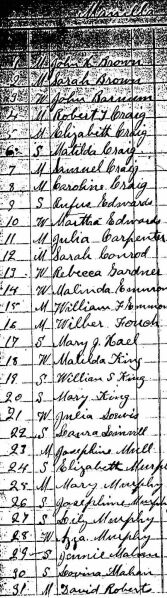 1 M John K Brown
2 M Sarah Brown
3 W John Barnum
4 M Robert T Craig
5 M Elizabeth Craig
6 S Matilda Craig
7 M Samuel Craig
8 M Caroline Craig
9 S Rufus Edwards
10 W Martha Edwards
11 M Julia Carpenter
12 M Sarah Conrod
13 W Rebecca Gardner
14 W Malinda Emmon
15 M William F Emmon
16 M Wilber
17 S Mary J Hael
18 W Matilda King
19 S William S King
20 S Mary King
21 W Julia
22 S Laura
23 M Josephine Mull
24 S Elizabeth Murph
25 M Mary Murphy
26 S Josephine Murph
27 S Lily Murphy
28 W Murphy
29 S Jennie
30 S Lovina Mahan
31 M David Robert